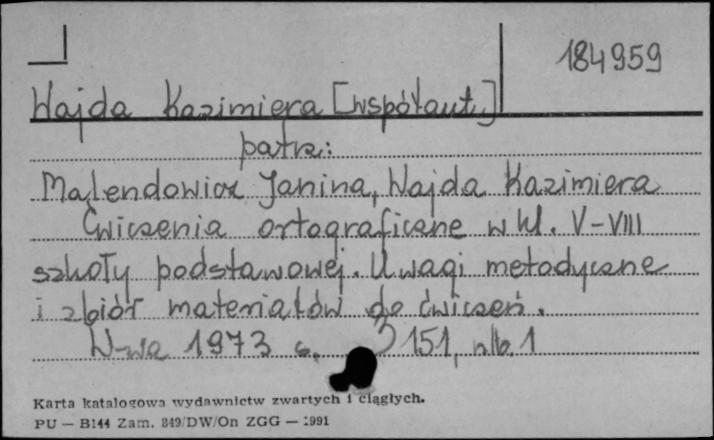 184959
Wajda Kazimiera [współaut.]
patrz:
Malendowicz Janina, Wajda Kazimiera
Ćwiczenia ortograficzne w kl. V-VIII
szkoły podstawowej. Uwagi metodyczne
i zbiór materiałów do ćwiczeń.
W-wa 1973 s. 151, nlb. 1
Karta katalogowa wydawnictw zwartych i ciągłych.
PU — B144 Zam. 849/DW/On ZGG — 1991